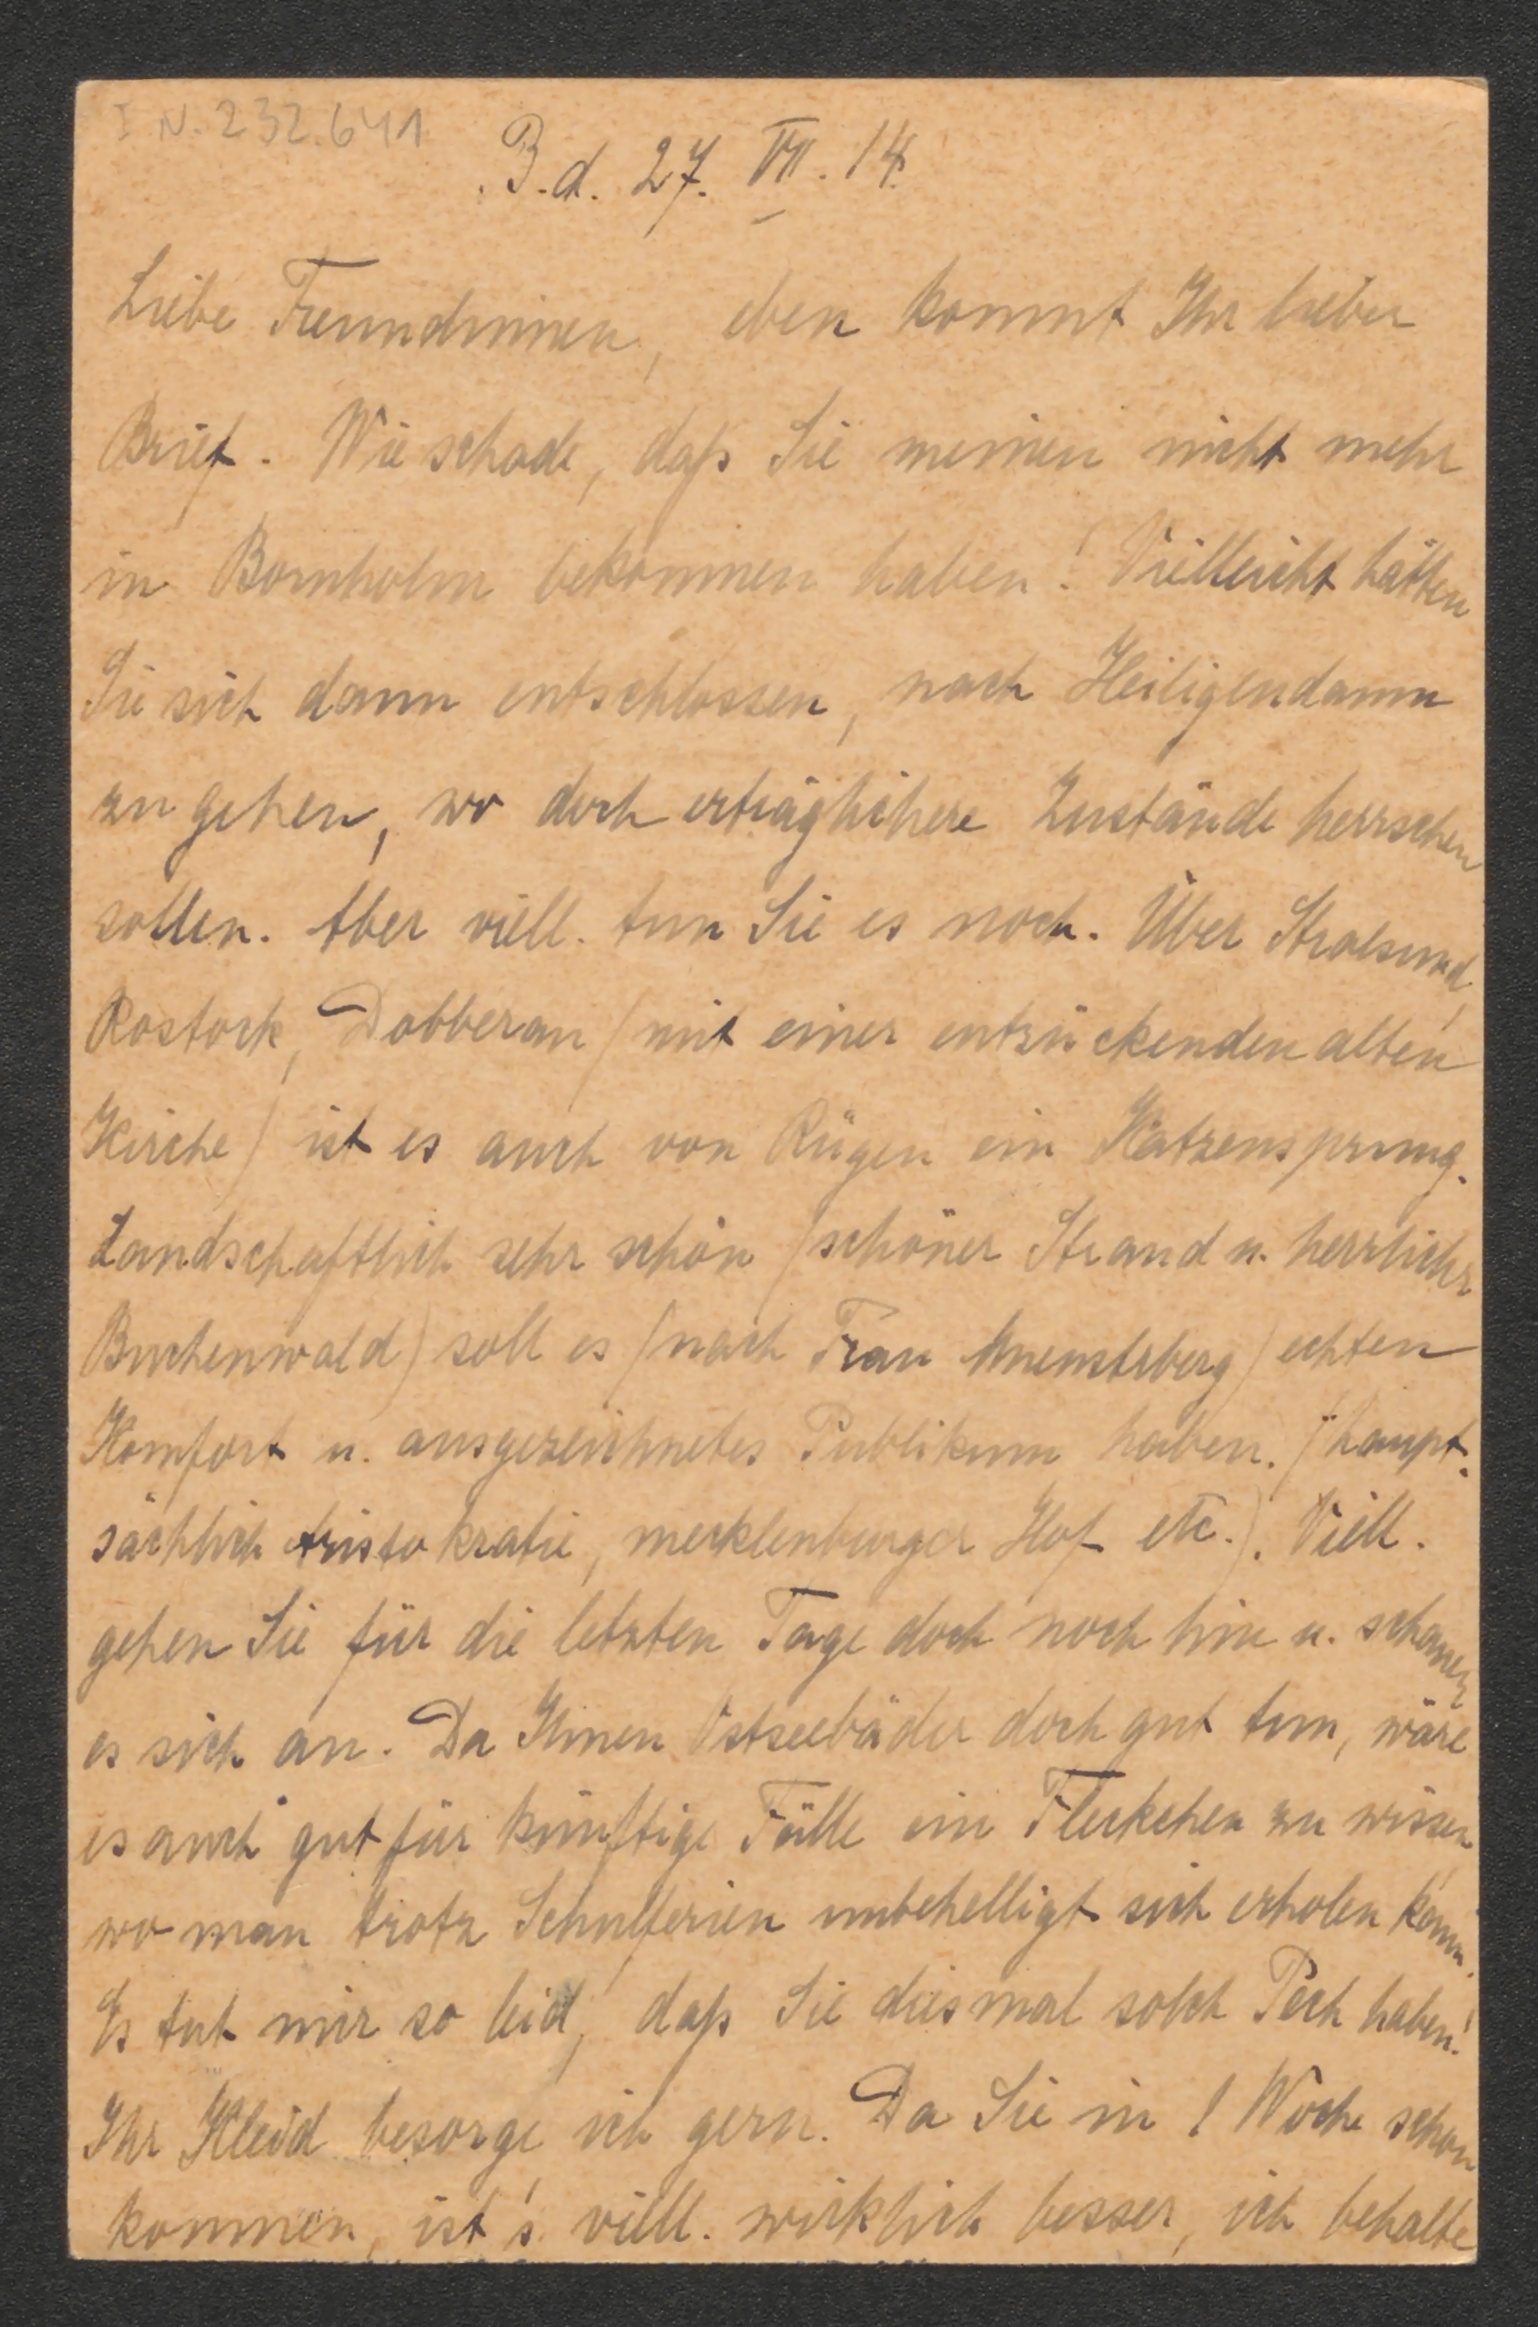 I N. 232.641
B. d. 27. VII. 14.
Liebe Freundinnen, eben kommt Ihr lieber
Brief. Wie schade, daß Sie meinen nicht mehr
in Bornholm bekommen haben! Vielleicht hätten
Sie sich dann entschlossen, nach Heiligendamm
zu gehen, wo doch erträglichere Zustände herrschen
sollen. Aber viell. tun Sie es noch. Über Stralsund,
Rostock, Dobberan (mit einer entzückenden alten
Kirche) ist es auch von Rügen ein Katzensprung.
Landschaftlich sehr schön (schöner Strand u. herrlicher
Buchenwald) soll es (nach Frau) echten
Komfort u. ausgezeichnetes Publikum haben. (haupt-
sächlich Aristokratie, mecklenburger Hof etc.). Viell.
gehen Sie für die letzten Tage doch noch hin u. schauen
es sich an. Da Ihnen Ostseebäder doch gut tun, wäre
es auch gut für künftige Fälle ein Fleckchen zu wissen,
wo man trotz Schulferien unbehelligt sich erholen kann.
Es tut mir so leid, daß Sie diesmal solch Pech haben!
Ihr Kleid besorge ich gern. Da Sie in 1 Woche schon
kommen, ist's viell. wirklich besser, ich behalte